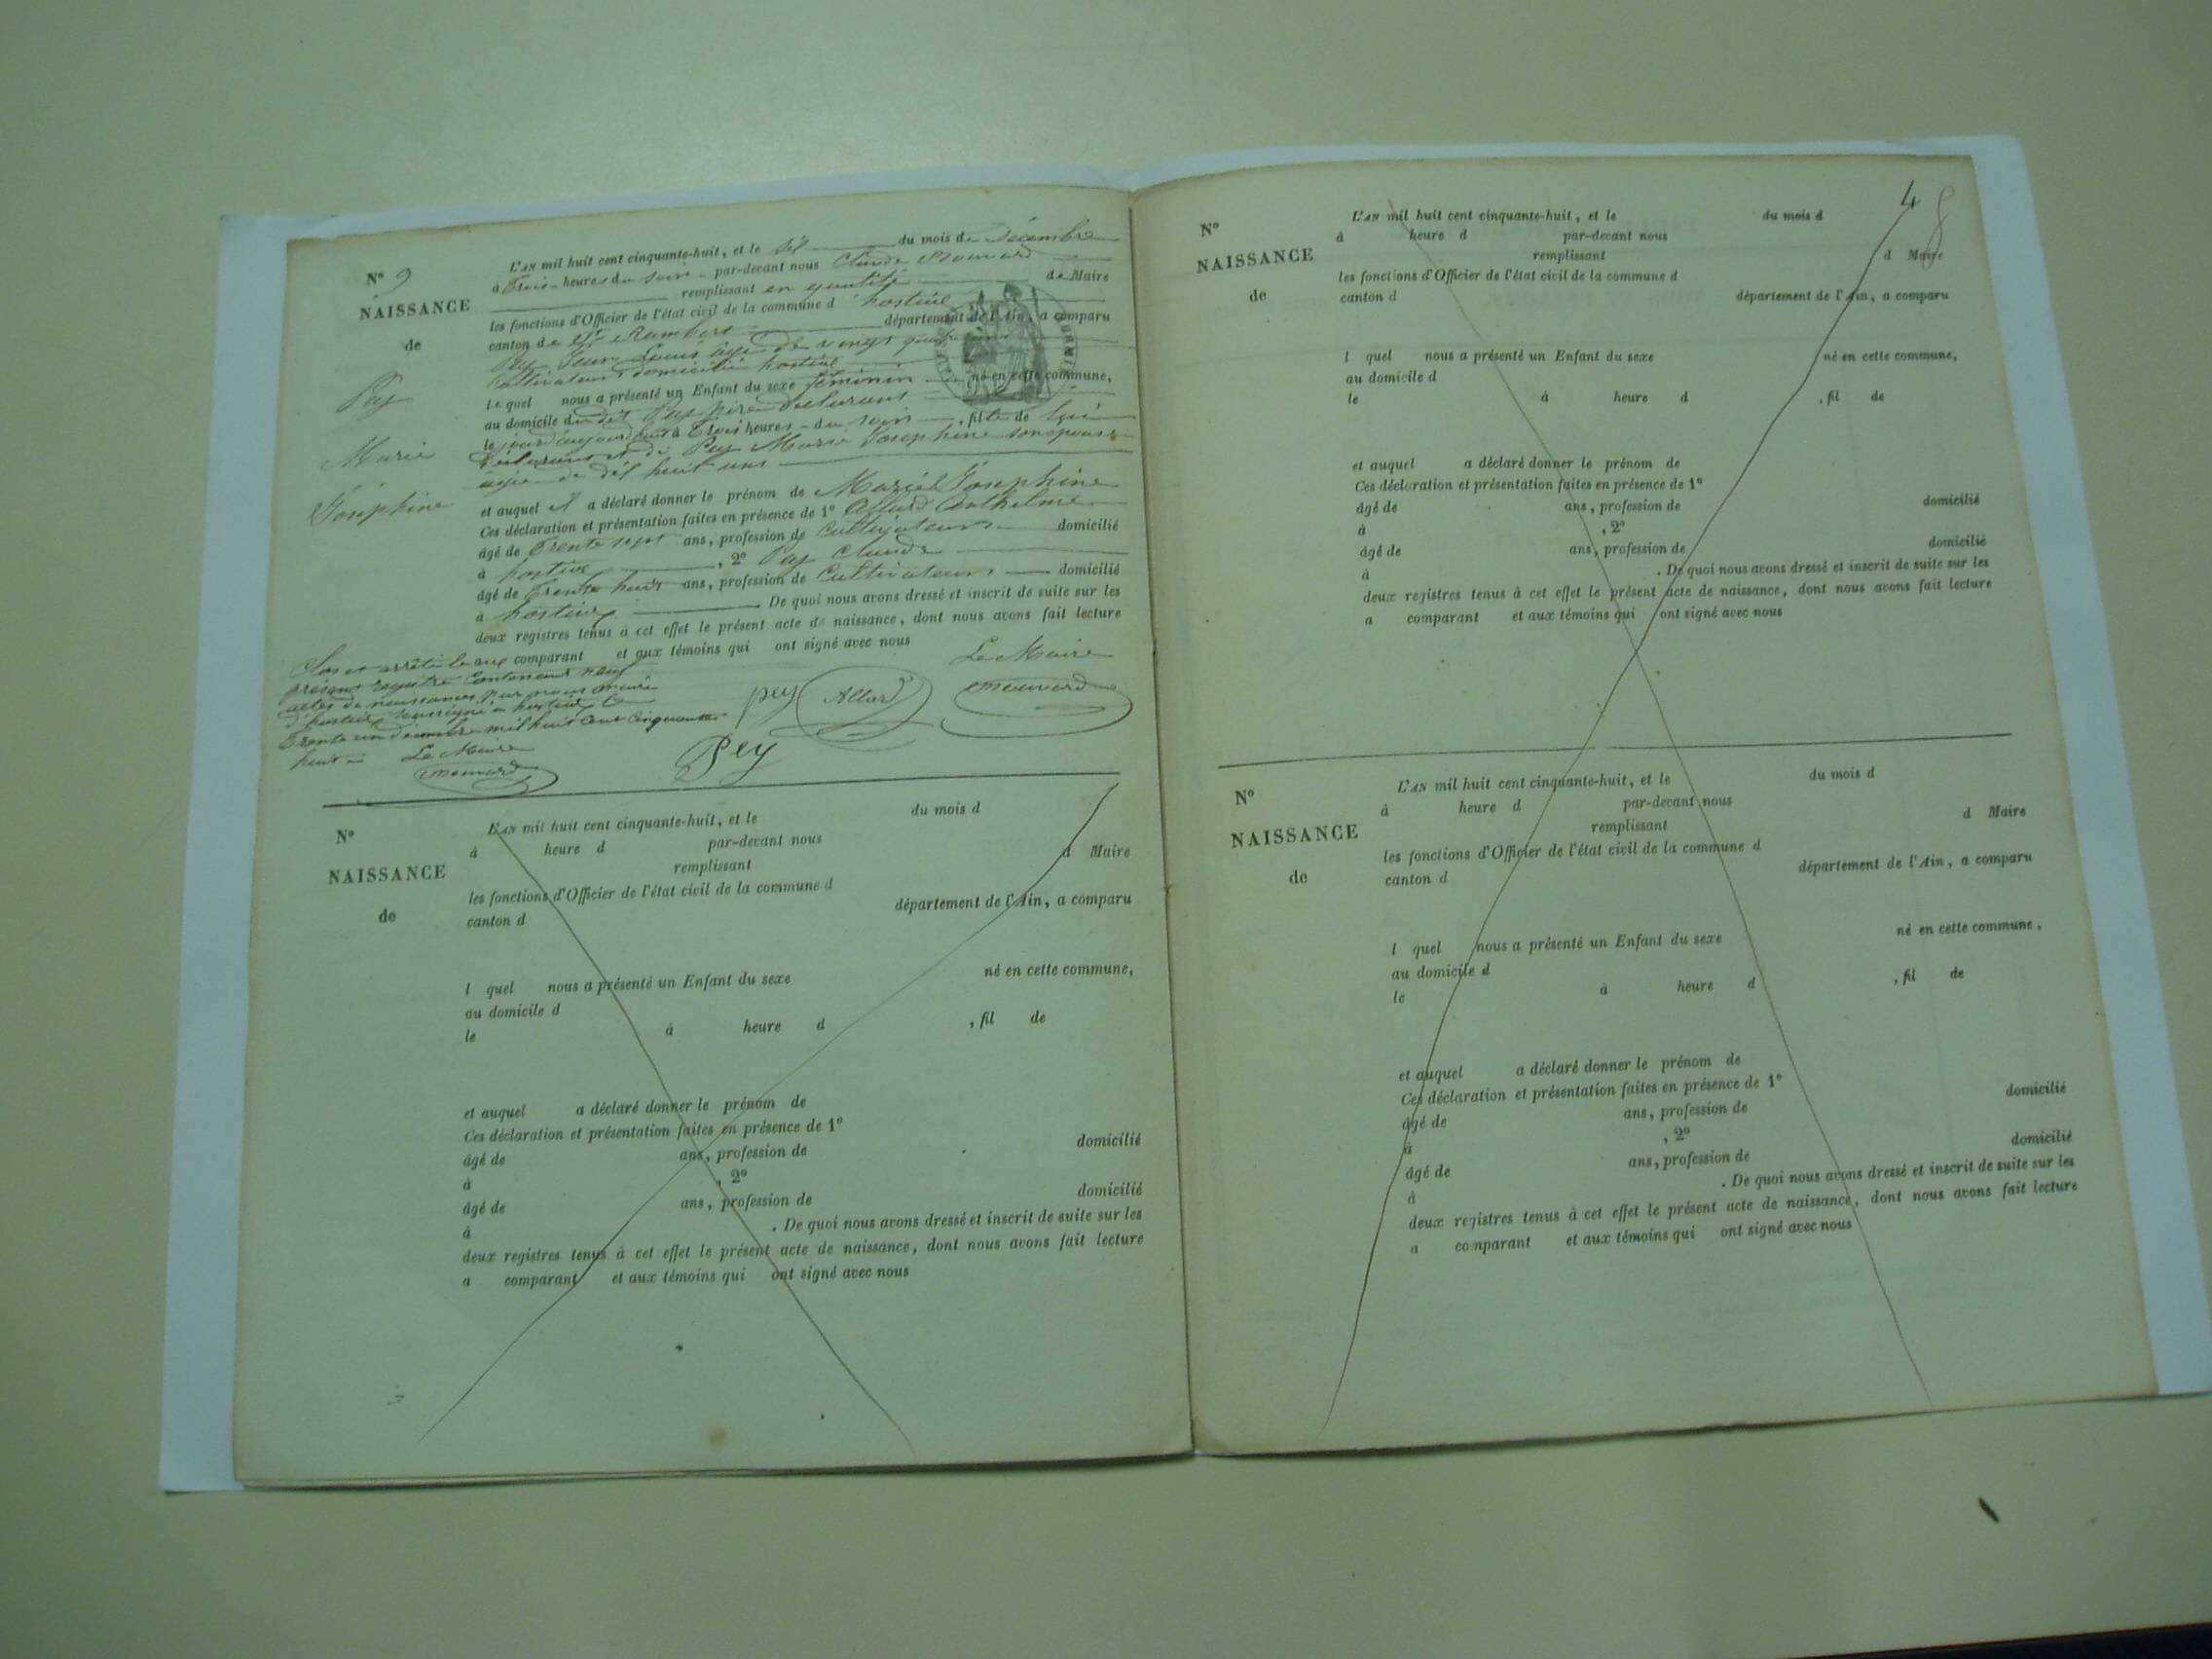 N° 9
NAISSANCE
de
Pey
Marie
Joséphine
L'AN mil huit cent cinquante-huit, et le dix du mois de Décembre
à trois heures du soir par-devant nous Claude
remplissant en qualité de Maire
les fonctions d'Officier de l'état civil de la commune d'hostiaz
canton de St Rambert département de l'Ain, a comparu
Pey Jean Louis âgé de vingt quatre ans
Cultivateur domicilié hostiaz
lequel nous a présenté un Enfant du sexe féminin né en cette commune,
au domicile du dit Pey père déclarant
le jour d'aujourd'hui à trois heures du soir, fille de lui
déclarant et de Pey Marie Josephine son épouse
agée de dix huit ans
et auquel il a déclaré donner le prénom de Marie Josephine
Ces déclaration et présentation faites en présence de 1° Allard Anthelme
âgé de trente sept ans, profession de Cultivateur domicilié
à hostiaz, 2° Pey Claude
âgé de trente huit ans, profession de Cultivateur domicilié
à hostiaz De quoi nous avons dressé et inscrit de suite sur les
deux registres tenus à cet effet le présent acte de naissance, dont nous avons fait lecture
aux comparant et aux témoins qui ont signé avec nous
Clos et arrêté le
présent registre contenant neuf
actes de naissances par nous maire
d'hostiaz soussigné à hostiaz le
trente un décembre mil huit cent cinquante
huit
Le Maire
Le Maire
pey Allard
Pey
N°
NAISSANCE
de
L'AN mil huit cent cinquante-huit, et le du mois d
à heure d par-devant nous
remplissant d Maire
les fonctions d'Officier de l'état civil de la commune d
canton d département de l'Ain, a comparu
l quel nous a présenté un Enfant du sexe né en cette commune,
au domicile d
le à heure d , fil de
et auquel a déclaré donner le prénom de
Ces déclaration et présentation faites en présence de 1°
âgé de ans, profession de domicilié
à , 2°
âgé de ans, profession de domicilié
à . De quoi nous avons dressé et inscrit de suite sur les
deux registres tenus à cet effet le présent acte de naissance, dont nous avons fait lecture
a comparant et aux témoins qui ont signé avec nous
4
8
N°
NAISSANCE
de
L'AN mil huit cent cinquante-huit, et le du mois d
à heure d par-devant nous
remplissant d Maire
les fonctions d'Officier de l'état civil de la commune d
canton d département de l'Ain, a comparu
l quel nous a présenté un Enfant du sexe né en cette commune,
au domicile d
le à heure d , fil de
et auquel a déclaré donner le prénom de
Ces déclaration et présentation faites en présence de 1°
âgé de ans, profession de domicilié
à , 2°
âgé de ans, profession de domicilié
à . De quoi nous avons dressé et inscrit de suite sur les
deux registres tenus à cet effet le présent acte de naissance, dont nous avons fait lecture
a comparant et aux témoins qui ont signé avec nous
N°
NAISSANCE
de
L'AN mil huit cent cinquante-huit, et le du mois d
à heure d par-devant nous
remplissant d Maire
les fonctions d'Officier de l'état civil de la commune d
canton d département de l'Ain, a comparu
l quel nous a présenté un Enfant du sexe né en cette commune,
au domicile d
le à heure d , fil de
et auquel a déclaré donner le prénom de
Ces déclaration et présentation faites en présence de 1°
âgé de ans, profession de domicilié
à , 2°
âgé de ans, profession de domicilié
à . De quoi nous avons dressé et inscrit de suite sur les
deux registres tenus à cet effet le présent acte de naissance, dont nous avons fait lecture
a comparant et aux témoins qui ont signé avec nous